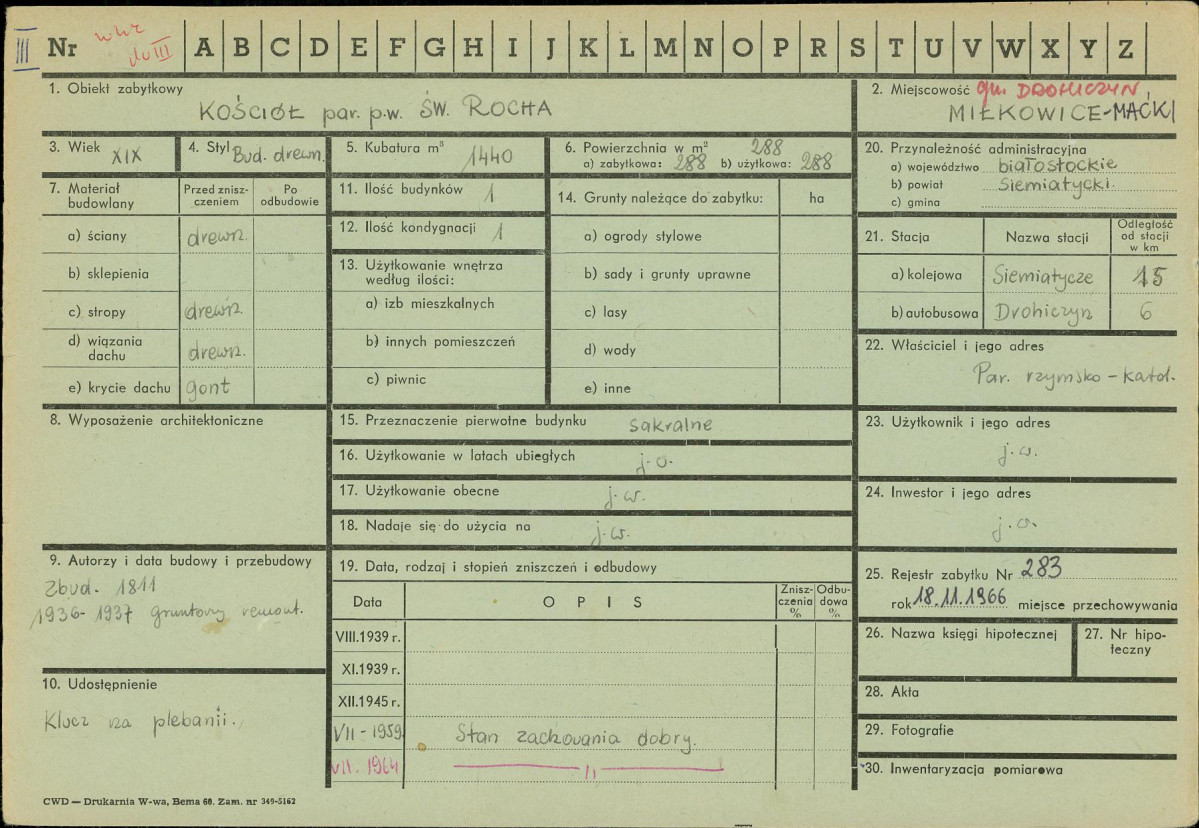 III
Nr
do III
A B C D E F G H I J K L M N O P R S T U V W X Y Z
1. Obiekt zabytkowy
KOŚCIÓŁ par. p.w. ŚW. ROCHA
2. Miejscowość gm. DROHICZYN
MIŁKOWICE-MAĆKI
3. Wiek XIX
4. Styl Bud. drewn.
5. Kubatura m³ 1440
6. Powierzchnia w m² 288
a) zabytkowa: 288 b) użytkowa: 288
20. Przynależność administracyjna
a) województwo białostockie
b) powiat Siemiatycki.
c) gmina
7. Materiał budowlany
Przed zniszczeniem
Po odbudowie
a) ściany drewn.
b) sklepienia
c) stropy drewn.
d) wiązania dachu drewn.
e) krycie dachu gont
11. Ilość budynków 1
12. Ilość kondygnacji 1
13. Użytkowanie wnętrza
według ilości:
a) izb mieszkalnych
b) innych pomieszczeń
c) piwnic
14. Grunty należące do zabytku: ha
a) ogrody stylowe
b) sady i grunty uprawne
c) lasy
d) wody
e) inne
21. Stacja Nazwa stacji Odległość od stacji w km
a) kolejowa Siemiatycze 15
b) autobusowa Drohiczyn 6
22. Właściciel i jego adres
Par. rzymsko-katol.
8. Wyposażenie architektoniczne
15. Przeznaczenie pierwotne budynku sakralne
16. Użytkowanie w latach ubiegłych j.w.
17. Użytkowanie obecne j.w.
18. Nadaje się do użycia na j.w.
23. Użytkownik i jego adres
j.w.
24. Inwestor i jego adres
j.w.
9. Autorzy i data budowy i przebudowy
Zbud. 1811
1936-1937 gruntowy remont.
10. Udostępnienie
Klucz na plebanii.
19. Data, rodzaj i stopień zniszczeń i odbudowy
Data OPIS Zniszczenia % Odbudowa %
VIII.1939 r.
XI.1939 r.
XII.1945 r.
VII-1959 Stan zachowania dobry.
VII. 1964 — 〃 —
25. Rejestr zabytku Nr 283
rok 18.11.1966 miejsce przechowywania
26. Nazwa księgi hipotecznej
27. Nr hipoteczny
28. Akta
29. Fotografie
30. Inwentaryzacja pomiarowa
CWD — Drukarnia W-wa, Bema 60. Zam. nr 349-5162